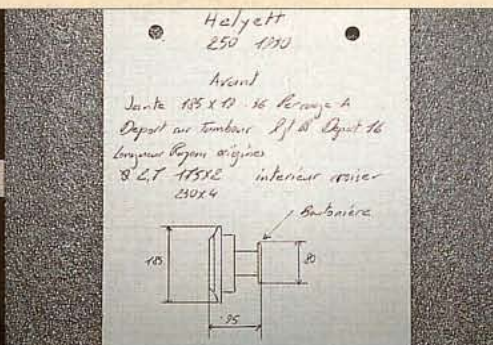 Helyett
250 1930
Avant
Jante 185 x 19 36 Perçage A
Deport au Tambour Déport 16
Longueur Rayons origines
175x2 interieur croiser
230x4
Boutonière
185
80
95